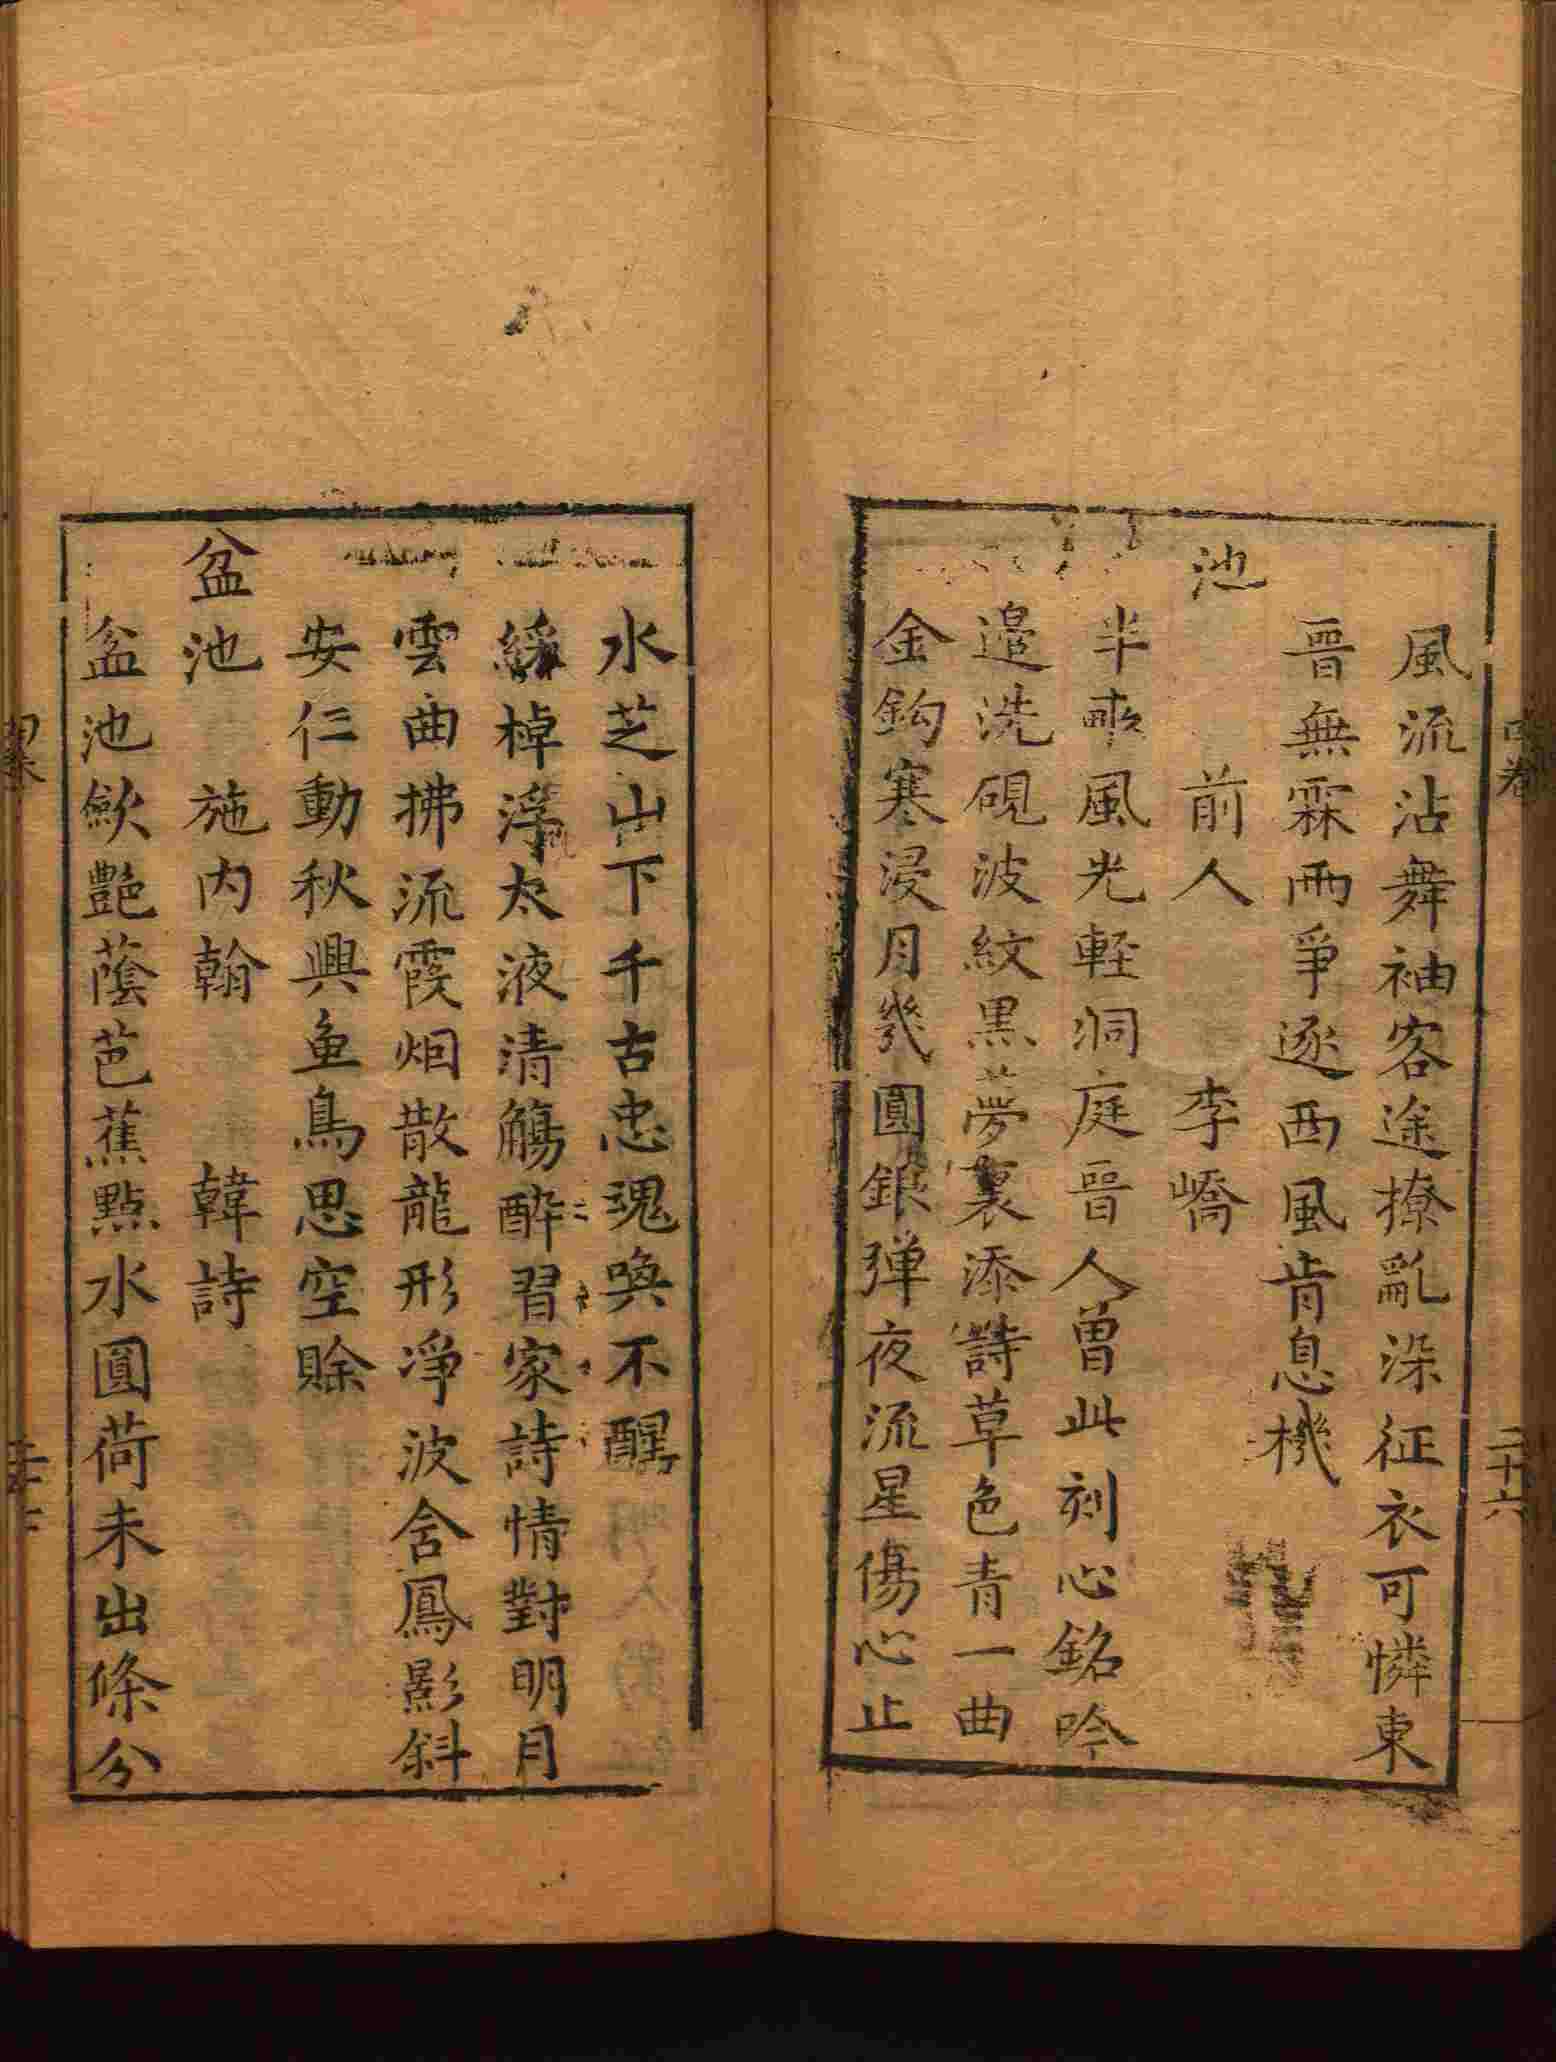 風流沾舞袖客途撩亂染征衣可憐東
晋無霖雨爭逐西風肯息機
池　前人　李嶠
半畝風光軽洞庭晋人曽此刻心銘吟
邉洗硯波紋黒夢裏添詩草色青一曲
金鈎寒浸月幾圓銀弾夜流星傷心止
水芝山下千古忠魂喚不醒
緩棹浮太液清觴酔習家詩情對明月
雲曲拂流霞烟散龍形淨波含鳳影斜
安仁動秋興鱼鳥思空賖
盆池　施内翰　韓詩
盆池歛艶蔭芭蕉點水圓荷未出條分
四卷
二十六